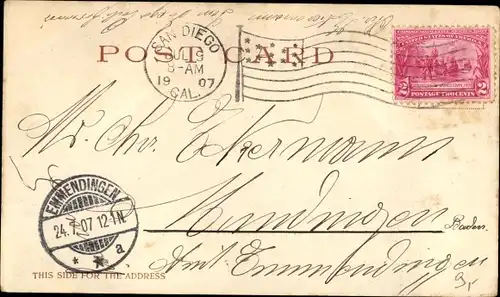 POST CARD
SAN DIEGO
JUL 9
8-AM
1907
CAL.
2 2
POSTAGE TWO CENTS
Mr. Chr. Eckermann
Mundingen
Baden.
Amt Emmendingen
EMMENDINGEN
24.7.07 12-1N.
* * a
THIS SIDE FOR THE ADDRESS